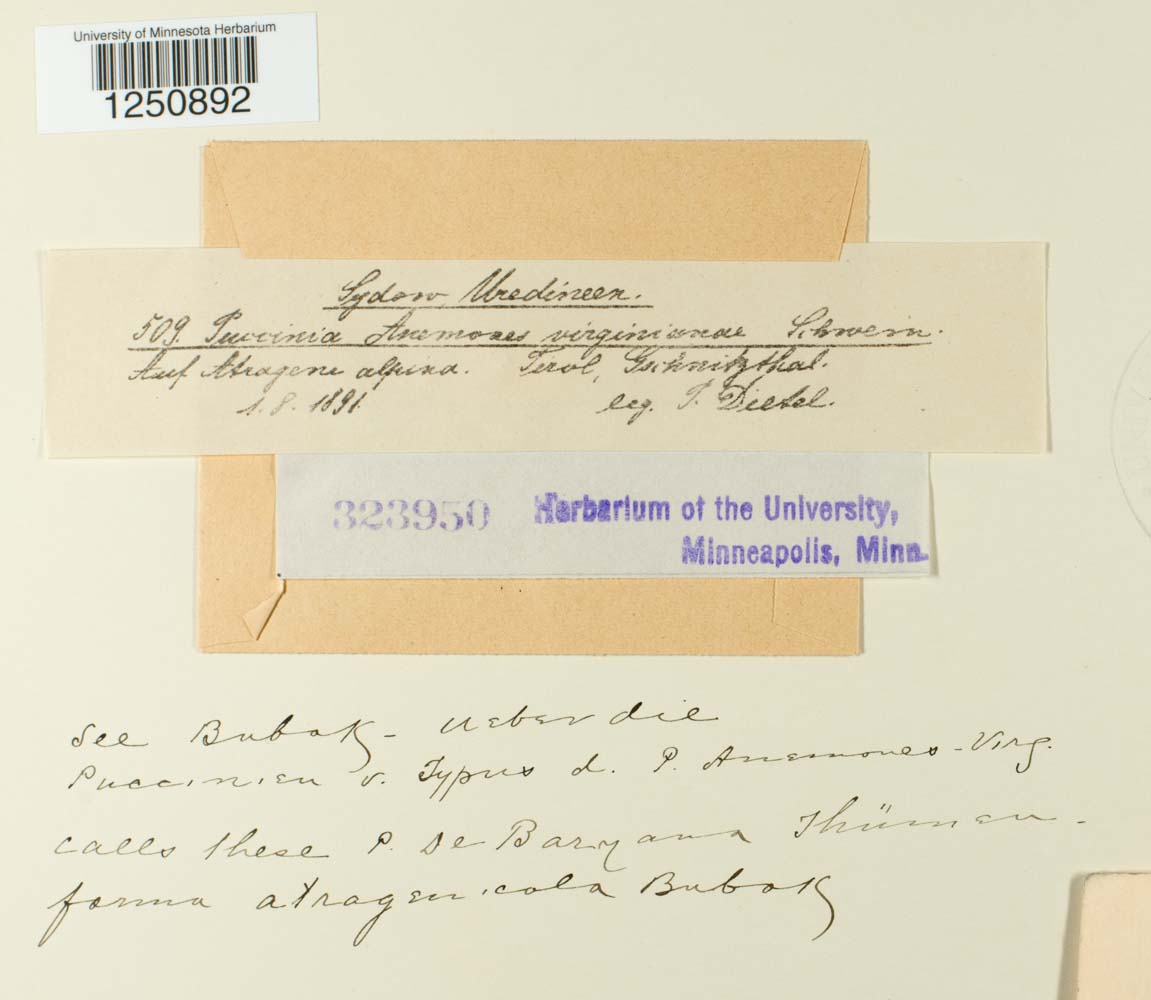 University of Minnesota Herbarium
1250892
Sydow, Uredineen.
509. Puccinia Anemones virginianae Schwein.
Auf Atragene alpina. Tirol, Gschnitzthal.
1. 8. 1891. leg. P. Dietel.
323950 Herbarium of the University,
Minneapolis, Minn.
See Bubak - Ueber die
Puccinien v. Typus d. P. Anemones-Virg.
calls these P. De Baryana Thümen -
forma atragenicola Bubak